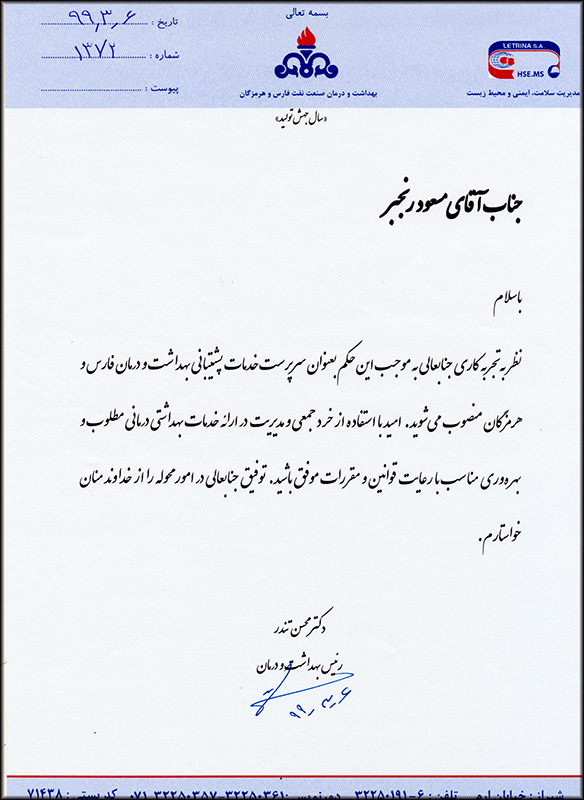 بسمه تعالی
تاریخ : ۹۹٫۳٫۶
شماره : ۱۳۷۲
پیوست :
LETRINA S.A
HSE.MS
مدیریت سلامت، ایمنی و محیط زیست
بهداشت و درمان صنعت نفت فارس و هرمزگان
«سال جهش تولید»
جناب آقای مسعود رنجبر
باسلام
نظر به تجربه کاری جنابعالی به موجب این حکم بعنوان سرپرست خدمات پشتیبانی بهداشت و درمان فارس و
هرمزگان منصوب می‌شوید. امید با استفاده از خرد جمعی و مدیریت در ارائه خدمات بهداشتی درمانی مطلوب و
بهره‌وری مناسب با رعایت قوانین و مقررات موفق باشید. توفیق جنابعالی در امور محوله را از خداوند منان
خواستارم.
دکتر محسن تندر
رئیس بهداشت و درمان
۹۹٫۳٫۶
شیراز: خیابان ارم - تلفن : ۶-۳۲۲۵۰۱۹۱ دورنویس: ۳۲۲۵۰۳۶۱-۳۲۲۵۰۳۵۷-۰۷۱ کد پستی : ۷۱۴۳۸